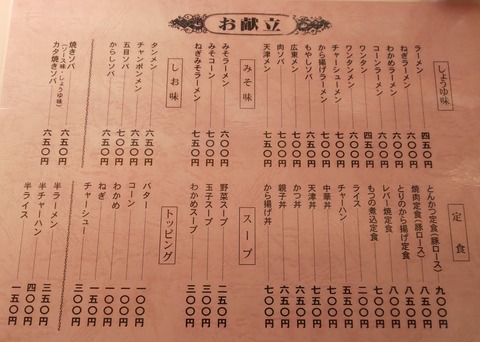 お献立
しょうゆ味
ラーメン 四五〇円
ねぎラーメン 六〇〇円
わかめラーメン 六〇〇円
コーンラーメン 六〇〇円
ワンタン 四五〇円
ワンタンメン 六〇〇円
チャーシューメン 七〇〇円
から揚げラーメン 七〇〇円
もやしソバ
広東メン
肉ソバ
天津メン 七五〇円
みそ味
みそラーメン 六〇〇円
みそコーン 七五〇円
ねぎみそラーメン 七五〇円
しお味
タンメン 六五〇円
チャンポンメン 七五〇円
五目ソバ 七〇〇円
からしソバ 六五〇円
焼きソバ 六五〇円
(ソース味・しょうゆ味)
カタ焼きソバ 六五〇円
定食
とんかつ定食(豚ロース) 九〇〇円
焼肉定食(豚ロース) 八五〇円
とりのから揚げ定食 八五〇円
レバー焼定食 八〇〇円
もつの煮込定食 七〇〇円
ライス 二〇〇円
チャーハン 六〇〇円
中華丼
天津丼
かつ丼
親子丼
から揚げ丼 七〇〇円
スープ
野菜スープ 二五〇円
玉子スープ 三〇〇円
わかめスープ 三〇〇円
トッピング
バター 一〇〇円
コーン 一〇〇円
わかめ 一五〇円
ねぎ 一五〇円
チャーシュー 三〇〇円
半ラーメン 三五〇円
半チャーハン 四〇〇円
半ライス 一五〇円